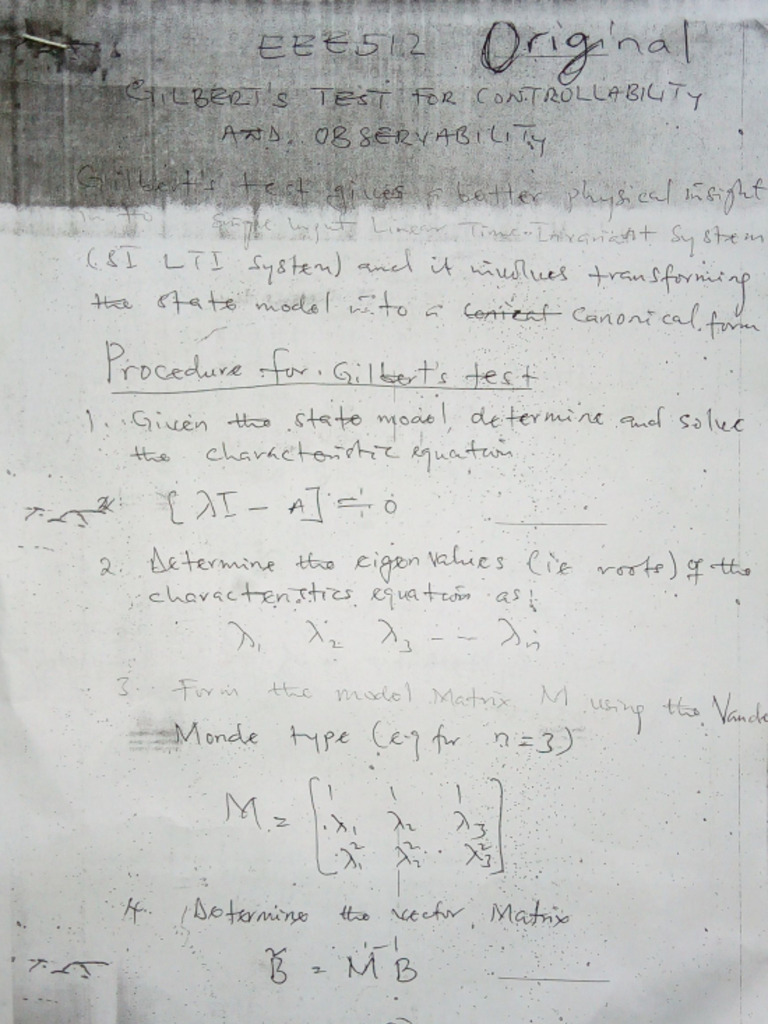 EEE512 Original
GILBERT'S TEST FOR CONTROLLABILITY
AND. OBSERVABILITY
Gilbert's test gives a better physical insight
in to Single Input Linear Time-Invariant System
(SI LTI System) and it involves transforming
the state model into a canonical form
Procedure for Gilbert's test
1. Given the state model, determine and solve
the characteristic equation
[λI - A] = 0
2. Determine the eigen values (ie roots) of the
characteristics equation as:
λ₁ λ₂ λ₃ -- λₙ
3. Form the model Matrix M using the Vande
Monde type (e.g for n=3)
M = [1 1 1
λ₁ λ₂ λ₃
λ₁² λ₂² λ₃²]
4. Determine the vector Matrix
B̃ = M⁻¹B